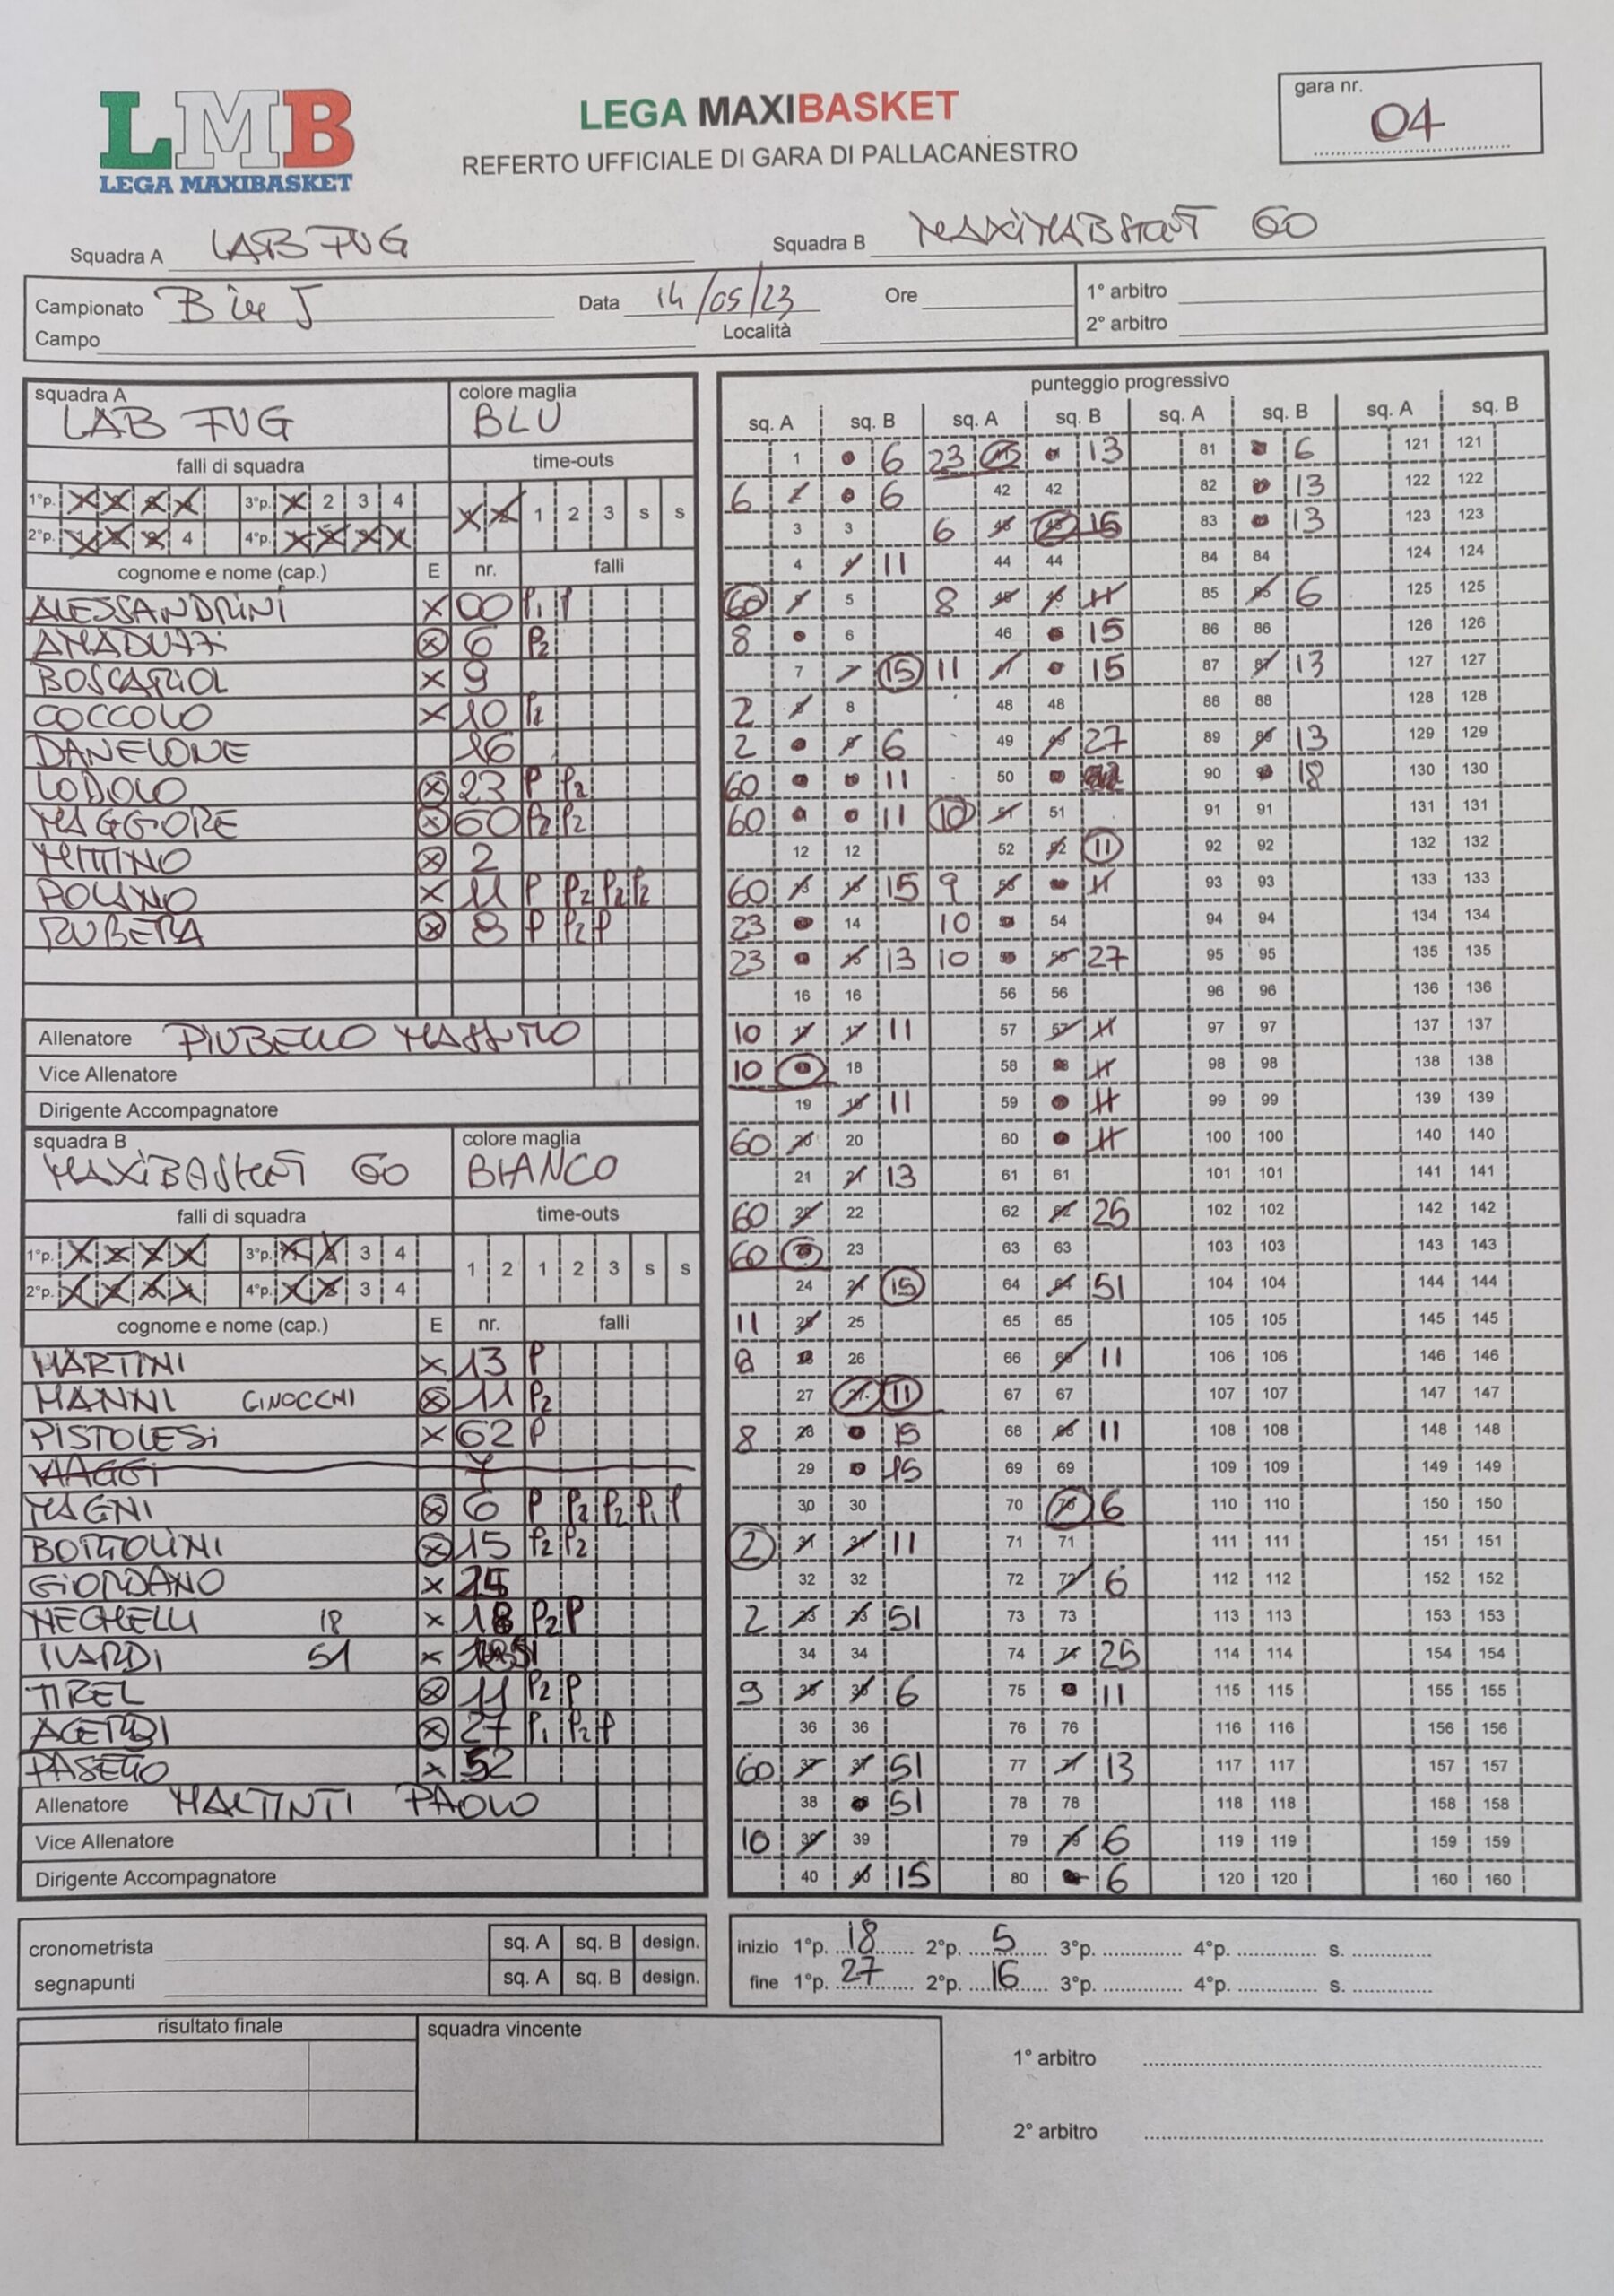 LMB
LEGA MAXIBASKET
LEGA MAXIBASKET
REFERTO UFFICIALE DI GARA DI PALLACANESTRO
gara nr.
04
Squadra A LAB FVG
Squadra B
Campionato
Data 14/05/23
Ore
1° arbitro
Campo
Località
2° arbitro
squadra A
colore maglia
LAB FVG
BLU
falli di squadra
time-outs
1°p. 1 2 3 4 3°p. 1 2 3 4
1 2 1 2 3 s s
2°p. 1 2 3 4 4°p. 1 2 3 4
cognome e nome (cap.) E nr. falli
ALESSANDRINI X 00 P1 P
AMADUZZI X 6 P2
BOSCARIOL X 9
COCCOLO X 10 P2
DANELONE 16
LODOLO X 23 P P2
MAGGIORE X 60 P2 P2
MITTINO X 2
POLINO X 11 P P2 P2 P2
RUBERA X 8 P P2 P
Allenatore PIUBELLO MASSIMO
Vice Allenatore
Dirigente Accompagnatore
squadra B
colore maglia
MAXIBASKET GO
BIANCO
falli di squadra
time-outs
1°p. 1 2 3 4 3°p. 1 2 3 4
1 2 1 2 3 s s
2°p. 1 2 3 4 4°p. 1 2 3 4
cognome e nome (cap.) E nr. falli
MARTINI X 13 P
MANNI GINOCCHI X 11 P2
PISTOLESI X 62 P
VIAGGI 7
MAGNI X 6 P P2 P2 P1 P
BORTOLINI X 15 P2 P2
GIORDANO X 25
NECHELLI 18 X 18 P2 P
IVARDI 51 X 51
TIREL X 11 P2 P
ACERBI X 27 P1 P2 P
PASETTO X 52
Allenatore PAOLO
Vice Allenatore
Dirigente Accompagnatore
punteggio progressivo
sq. A sq. B sq. A sq. B sq. A sq. B sq. A sq. B
1 6 23 13 81 6 121 121
6 6 42 42 82 13 122 122
3 3 6 15 83 13 123 123
4 11 44 44 84 84 124 124
60 5 8 H 85 6 125 125
8 6 46 15 86 86 126 126
7 15 11 15 87 13 127 127
2 8 48 48 88 88 128 128
2 6 49 27 89 13 129 129
60 11 50 90 18 130 130
60 11 10 51 91 91 131 131
12 12 52 11 92 92 132 132
60 15 9 H 93 93 133 133
23 14 10 54 94 94 134 134
23 13 10 27 95 95 135 135
16 16 56 56 96 96 136 136
10 11 57 H 97 97 137 137
10 18 58 H 98 98 138 138
19 11 59 H 99 99 139 139
60 20 60 H 100 100 140 140
21 13 61 61 101 101 141 141
60 22 62 25 102 102 142 142
60 23 63 63 103 103 143 143
24 15 64 51 104 104 144 144
11 25 65 65 105 105 145 145
8 26 66 11 106 106 146 146
27 11 67 67 107 107 147 147
8 15 68 11 108 108 148 148
29 15 69 69 109 109 149 149
30 30 70 6 110 110 150 150
2 11 71 71 111 111 151 151
32 32 72 6 112 112 152 152
2 51 73 73 113 113 153 153
34 34 74 25 114 114 154 154
9 6 75 11 115 115 155 155
36 36 76 76 116 116 156 156
60 51 77 13 117 117 157 157
38 51 78 78 118 118 158 158
10 39 79 6 119 119 159 159
40 15 80 6 120 120 160 160
cronometrista sq. A sq. B design.
segnapunti sq. A sq. B design.
inizio 1°p. 18 2°p. 5 3°p. 4°p. s.
fine 1°p. 27 2°p. 16 3°p. 4°p. s.
risultato finale
squadra vincente
1° arbitro
2° arbitro